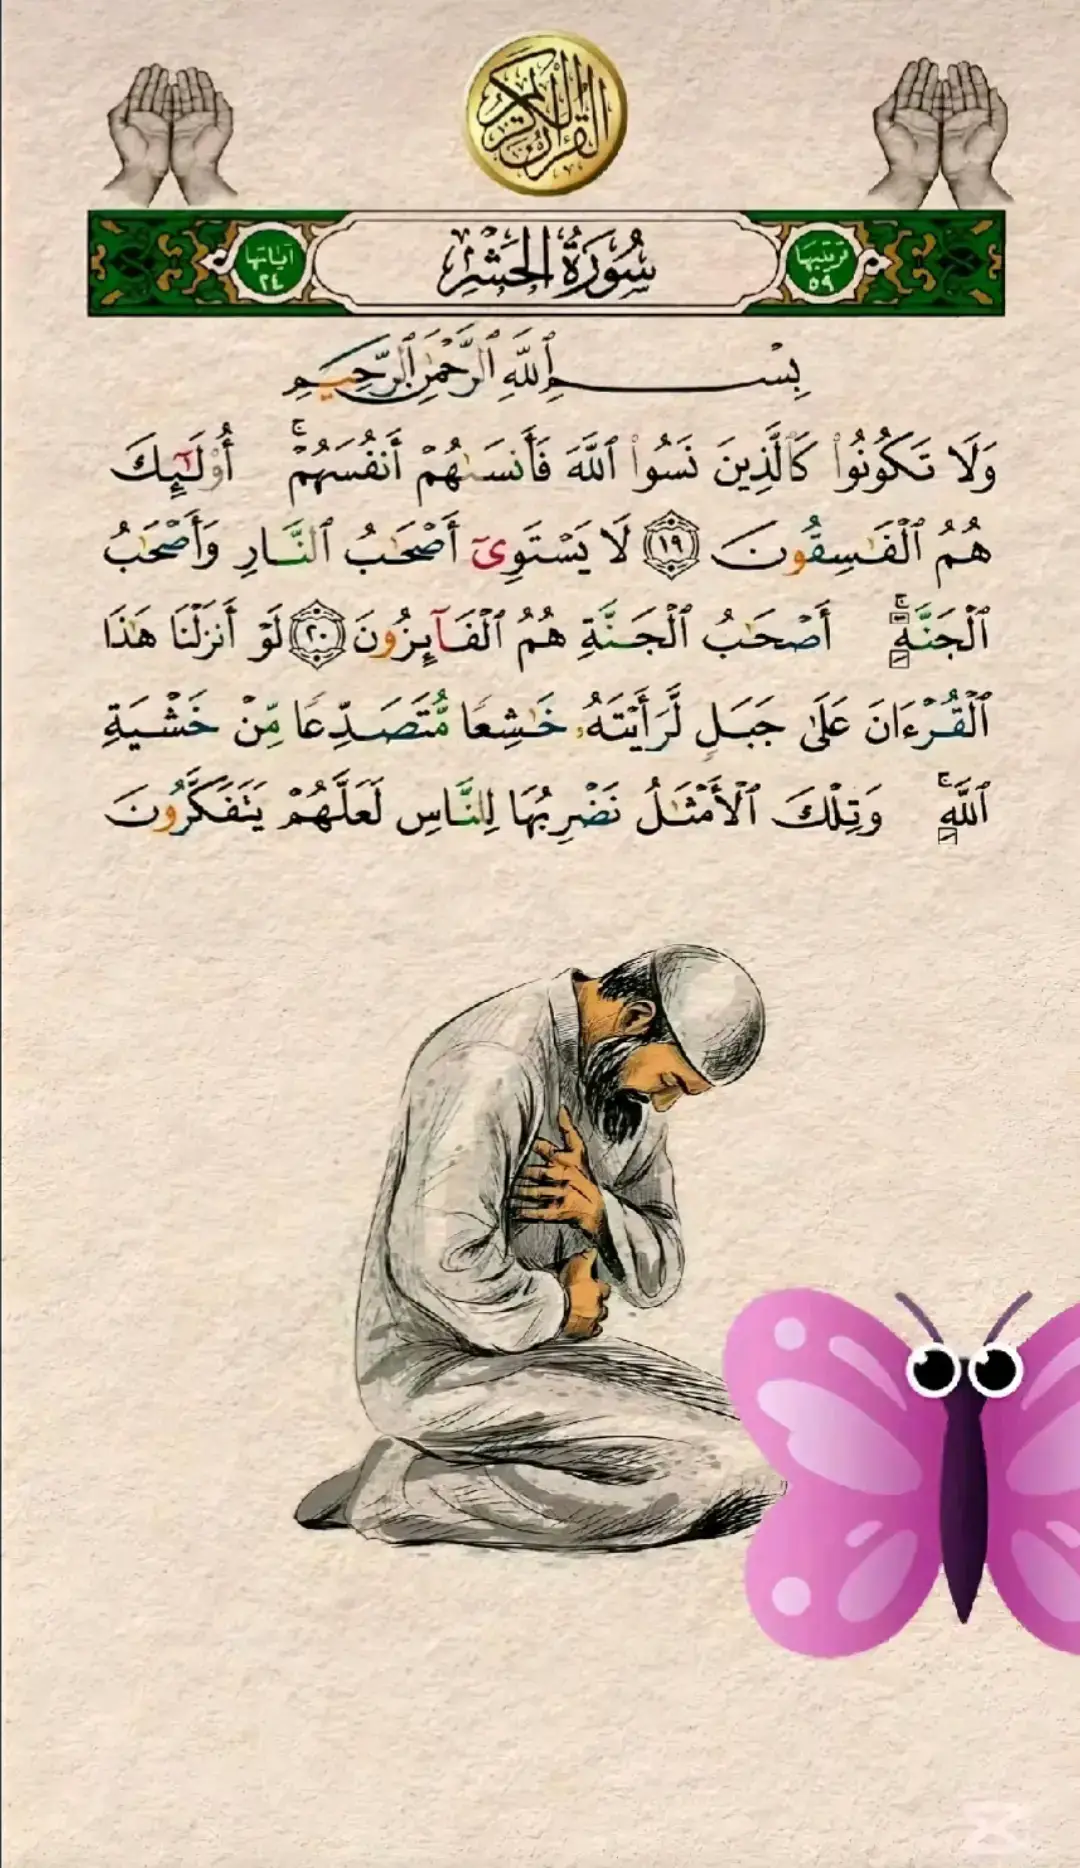 القرآن الكريم
ترتيبها ٥٩
سُورَةُ الحَشْرِ
آياتها ٢٤
بِسْمِ ٱللَّهِ ٱلرَّحْمَٰنِ ٱلرَّحِيمِ
وَلَا تَكُونُوا۟ كَٱلَّذِينَ نَسُوا۟ ٱللَّهَ فَأَنسَىٰهُمْ أَنفُسَهُمْ ۚ أُو۟لَٰٓئِكَ
هُمُ ٱلْفَٰسِقُونَ ١٩ لَا يَسْتَوِىٓ أَصْحَٰبُ ٱلنَّارِ وَأَصْحَٰبُ
ٱلْجَنَّةِ ۚ أَصْحَٰبُ ٱلْجَنَّةِ هُمُ ٱلْفَآئِزُونَ ٢٠ لَوْ أَنزَلْنَا هَٰذَا
ٱلْقُرْءَانَ عَلَىٰ جَبَلٍ لَّرَأَيْتَهُۥ خَٰشِعًا مُّتَصَدِّعًا مِّنْ خَشْيَةِ
ٱللَّهِ ۚ وَتِلْكَ ٱلْأَمْثَٰلُ نَضْرِبُهَا لِلنَّاسِ لَعَلَّهُمْ يَتَفَكَّرُونَ